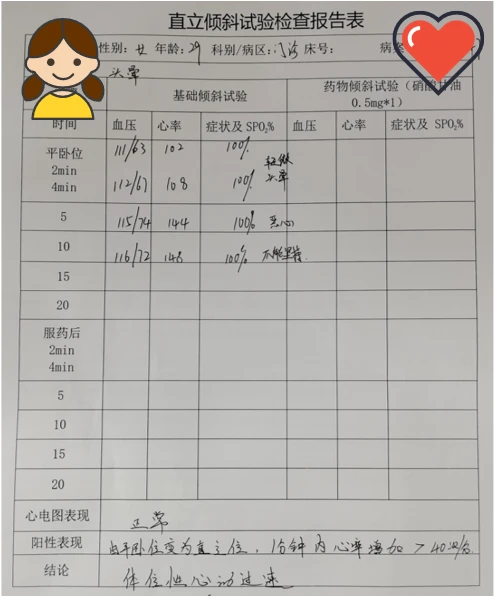 直立倾斜试验检查报告表
性别: 女 年龄: 29 科别/病区: 门诊 床号: 病案
头晕
基础倾斜试验 药物倾斜试验（硝酸甘油 0.5mg*1）
时间 血压 心率 症状及 SPO₂% 血压 心率 症状及 SPO₂%
平卧位
2min 111/63 102 100%
4min 112/67 108 100% 轻微头晕
5 115/74 144 100% 恶心
10 116/72 148 100% 不能坚持.
15
20
服药后
2min
4min
5
10
15
20
心电图表现 正常
阳性表现 由平卧位变为直立位，10分钟内心率增加 > 40次/分.
结论 体位性心动过速